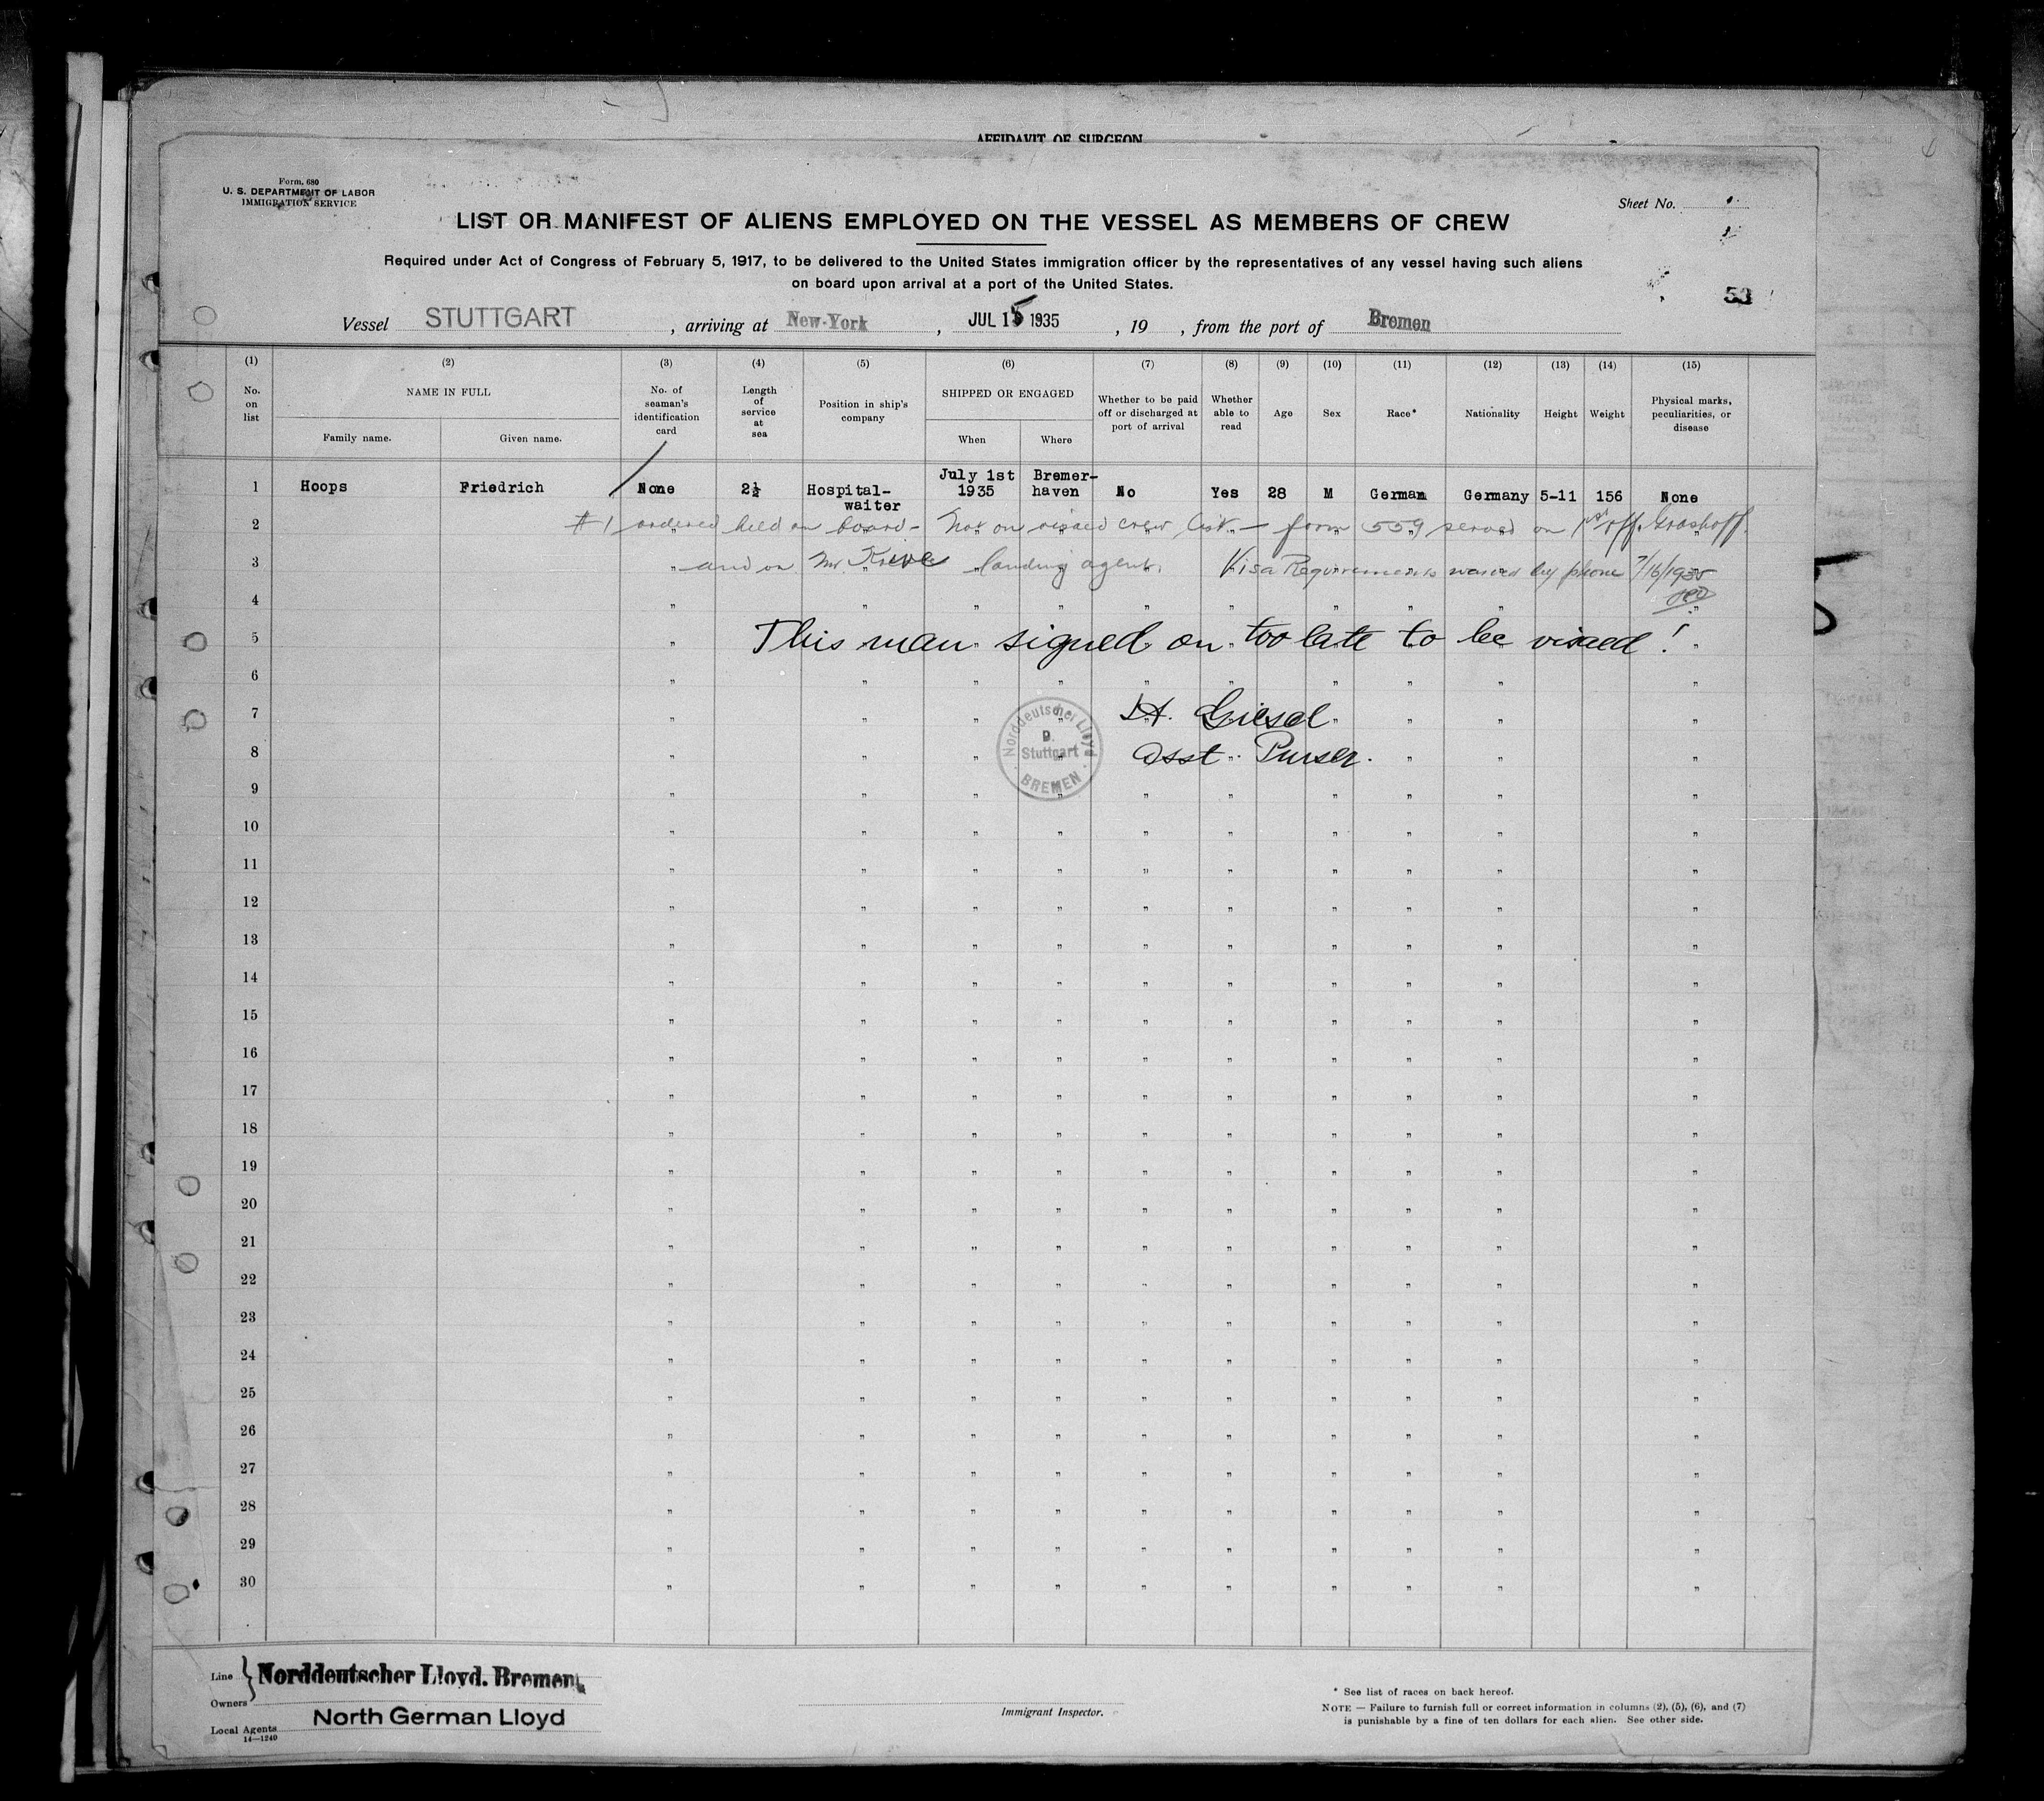 AFFIDAVIT OF SURGEON
Form 680
U. S. DEPARTMENT OF LABOR
IMMIGRATION SERVICE
Sheet No.
LIST OR MANIFEST OF ALIENS EMPLOYED ON THE VESSEL AS MEMBERS OF CREW
Required under Act of Congress of February 5, 1917, to be delivered to the United States immigration officer by the representatives of any vessel having such aliens
on board upon arrival at a port of the United States.
53
Vessel STUTTGART , arriving at New-York , JUL 15 1935 , 19 , from the port of Bremen
(1) (2) (3) (4) (5) (6) (7) (8) (9) (10) (11) (12) (13) (14) (15)
No. on list
NAME IN FULL
Family name. Given name.
No. of seaman's identification card
Length of service at sea
Position in ship's company
SHIPPED OR ENGAGED
When Where
Whether to be paid off or discharged at port of arrival
Whether able to read
Age
Sex
Race*
Nationality
Height
Weight
Physical marks, peculiarities, or disease
1 Hoops Friedrich None 2½ Hospital-waiter July 1st 1935 Bremer-haven No Yes 28 M German Germany 5-11 156 None
2 #1 ordered held on board - Not on visaed crew list - form 559 served on 1st off. Grashoff
3 and on Mr landing agent. Visa Requirements waived by phone 7/16/1935
4 " " " " " " " " " "
5 This man signed on too late to be visaed!
6 " " " " " " " " " "
7 H. Giesel
8 Asst. Purser.
Norddeutscher Lloyd
D.
Stuttgart
BREMEN
9 " " " " " " " " " "
10 " " " " " " " " " "
11 " " " " " " " " " "
12 " " " " " " " " " "
13 " " " " " " " " " "
14 " " " " " " " " " "
15 " " " " " " " " " "
16 " " " " " " " " " "
17 " " " " " " " " " "
18 " " " " " " " " " "
19 " " " " " " " " " "
20 " " " " " " " " " "
21 " " " " " " " " " "
22 " " " " " " " " " "
23 " " " " " " " " " "
24 " " " " " " " " " "
25 " " " " " " " " " "
26 " " " " " " " " " "
27 " " " " " " " " " "
28 " " " " " " " " " "
29 " " " " " " " " " "
30 " " " " " " " " " "
Line } Norddeutscher Lloyd. Bremen
Owners
Local Agents North German Lloyd
14—1240
Immigrant Inspector.
* See list of races on back hereof.
NOTE — Failure to furnish full or correct information in columns (2), (5), (6), and (7)
is punishable by a fine of ten dollars for each alien. See other side.